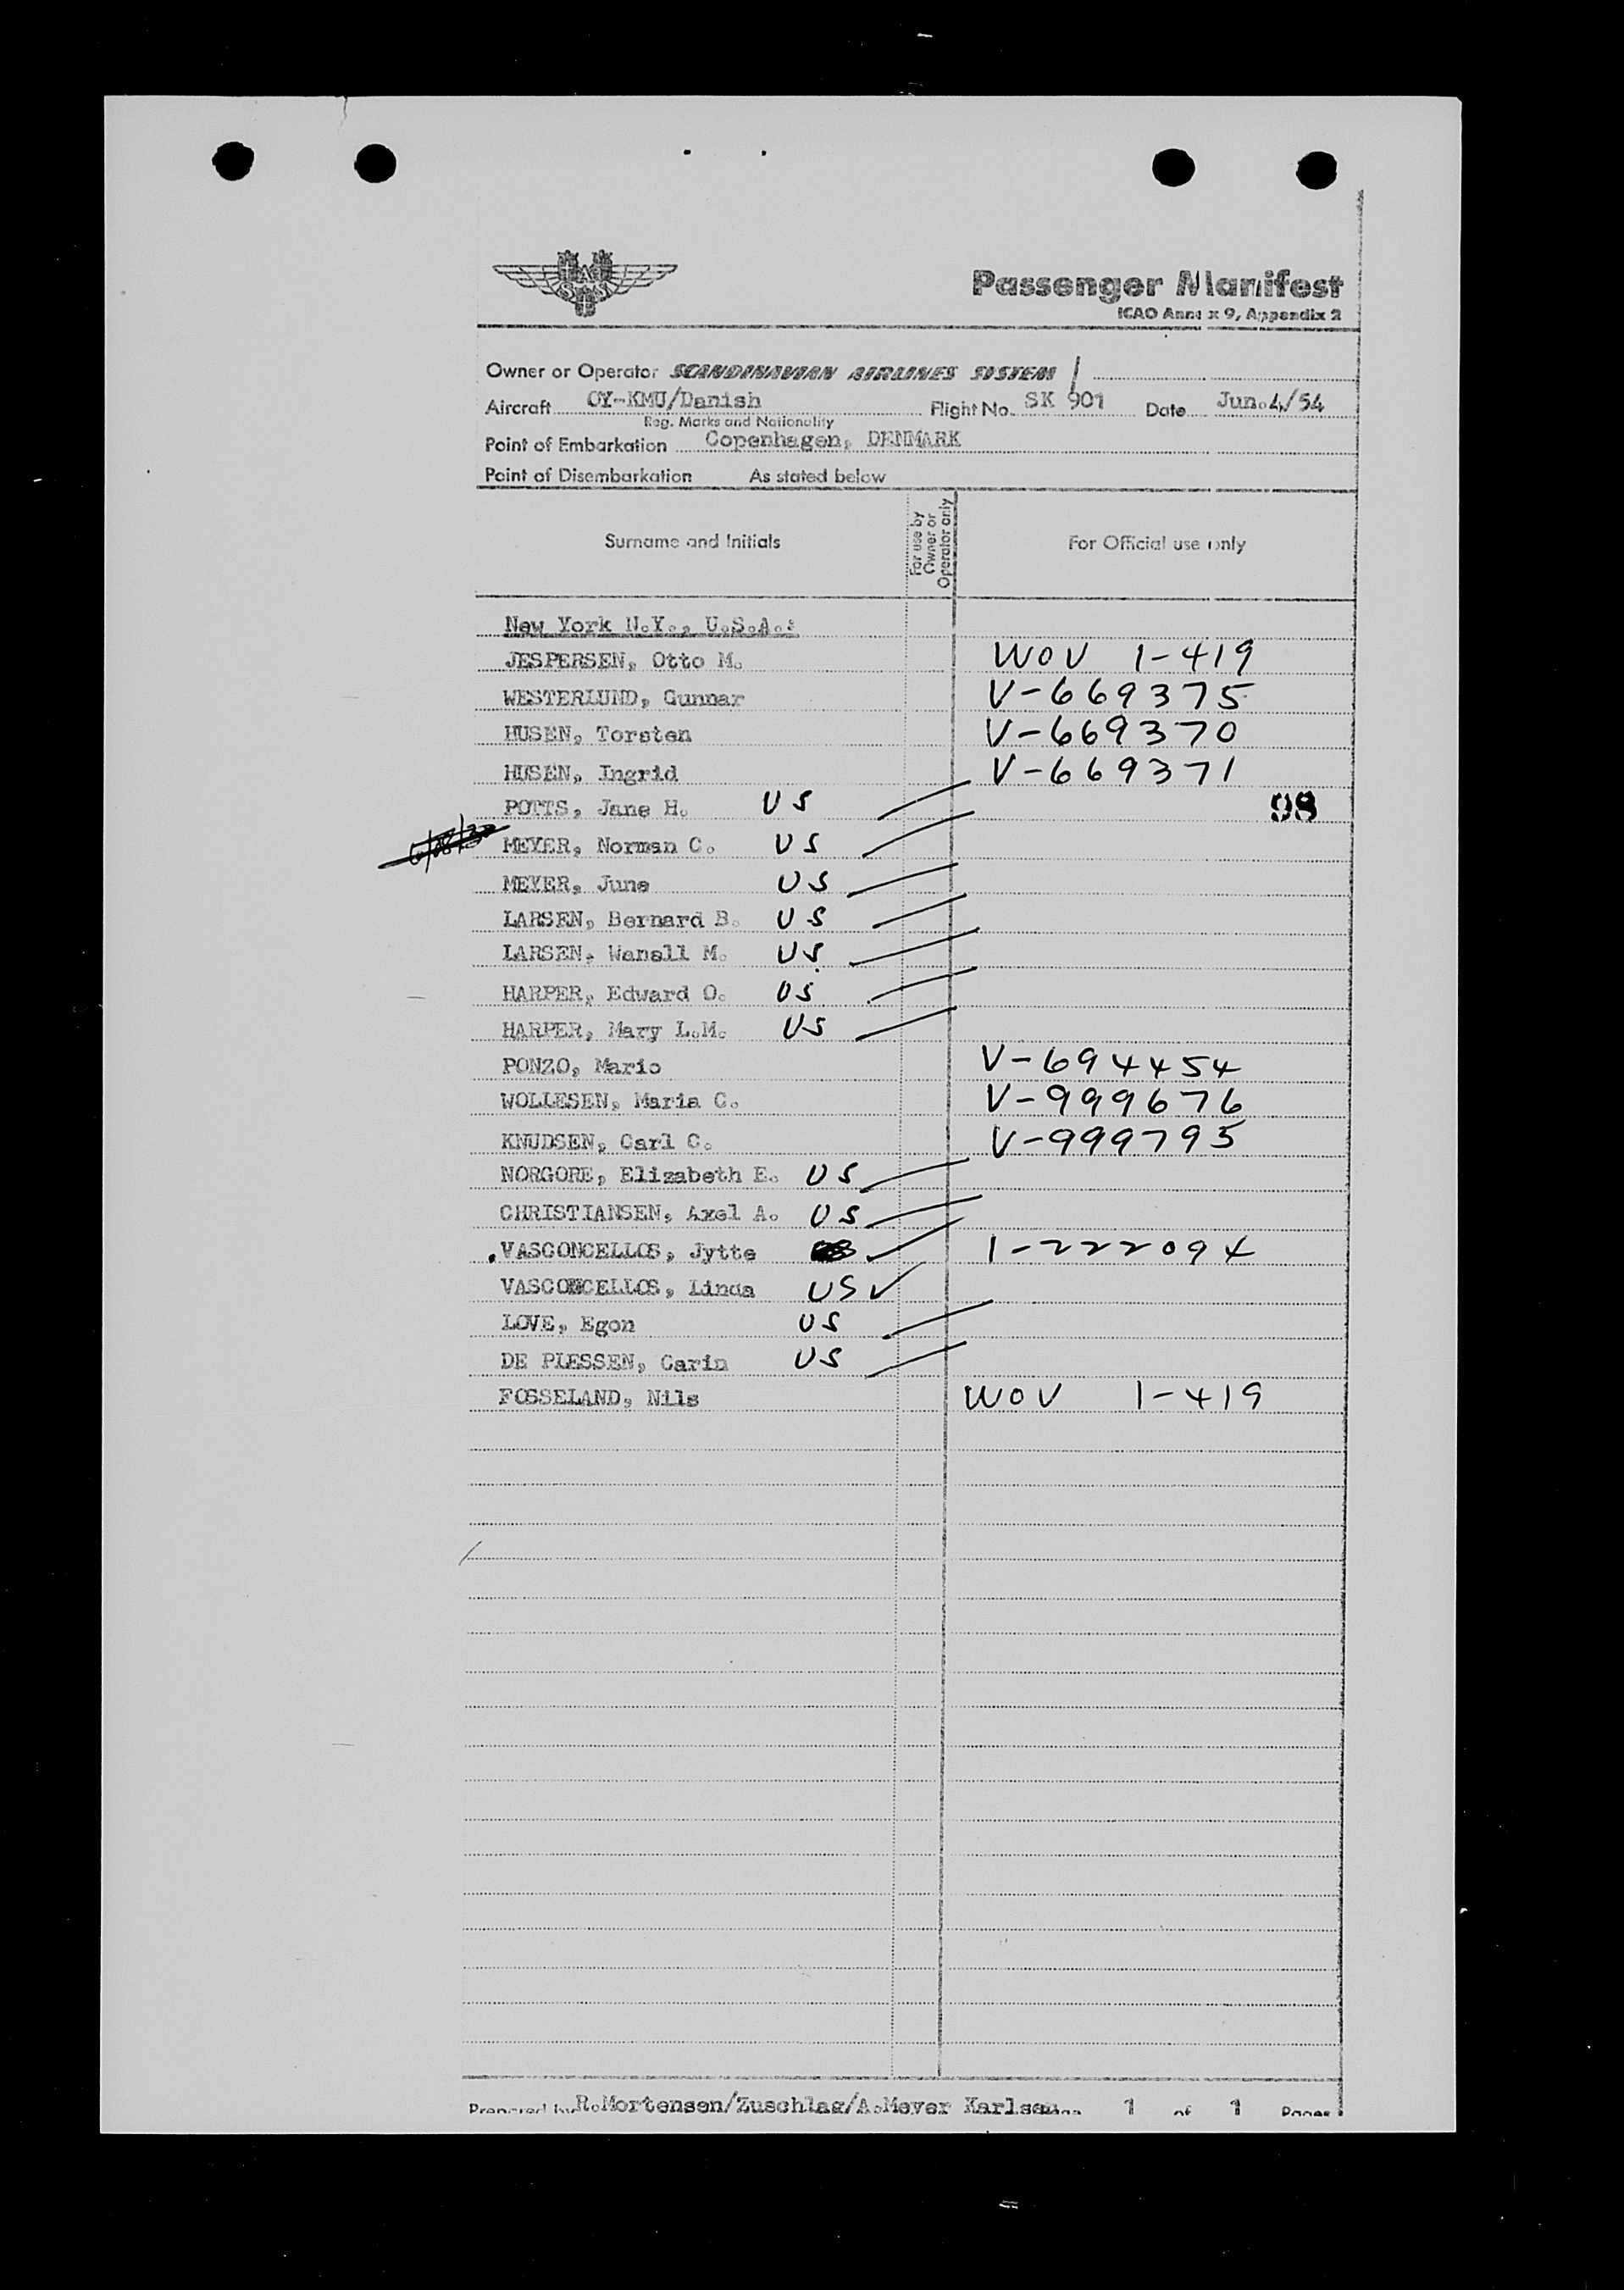 SAS
Passenger Manifest
ICAO Annex 9, Appendix 2
Owner or Operator SCANDINAVIAN AIRLINES SYSTEM
Aircraft OY-KMU/Danish Flight No. SK 901 Date Jun.4/54
Reg. Marks and Nationality
Point of Embarkation Copenhagen, DENMARK
Point of Disembarkation As stated below
Surname and Initials For use by Owner or Operator only For Official use only
New York N.Y., U.S.A.:
JESPERSEN, Otto M. WOV 1-419
WESTERLUND, Gunnar V-669375
HUSEN, Torsten V-669370
HUSEN, Ingrid V-669371
POTTS, Jane H. US 98
MEYER, Norman C. US
MEYER, June US
LARSEN, Bernard B. US
LARSEN, Wanall M. US
HARPER, Edward O. US
HARPER, Mary L.M. US
PONZO, Mario V-694454
WOLLESEN, Maria C. V-999676
KNUDSEN, Carl C. V-999795
NORGORE, Elizabeth E. US
CHRISTIANSEN, Axel A. US
VASCONCELLOS, Jytte 1-222094
VASCONCELLOS, Linda US
LOVE, Egon US
DE PLESSEN, Carin US
FOSSELAND, Nils WOV 1-419
Prepared by R.Mortensen/Zuschlag/A.Meyer Karlsen 1 of 1 Pages